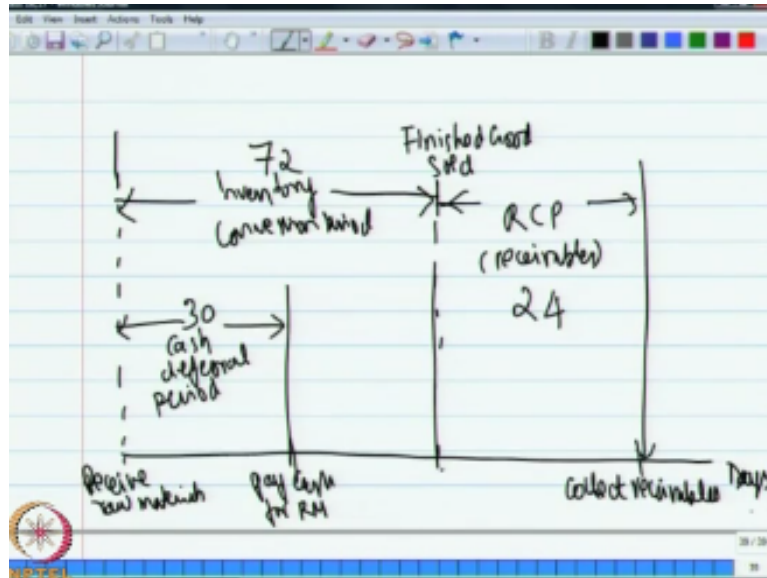 Edit View Insert Actions Tools Help
B I
72
Inventory
Conversion Period
Finished Good
Sold
RCP
(receivables)
24
30
Cash
deferral
period
Receive
raw materials
pay cash
for RM
Collect receivables
Days
NPTEL